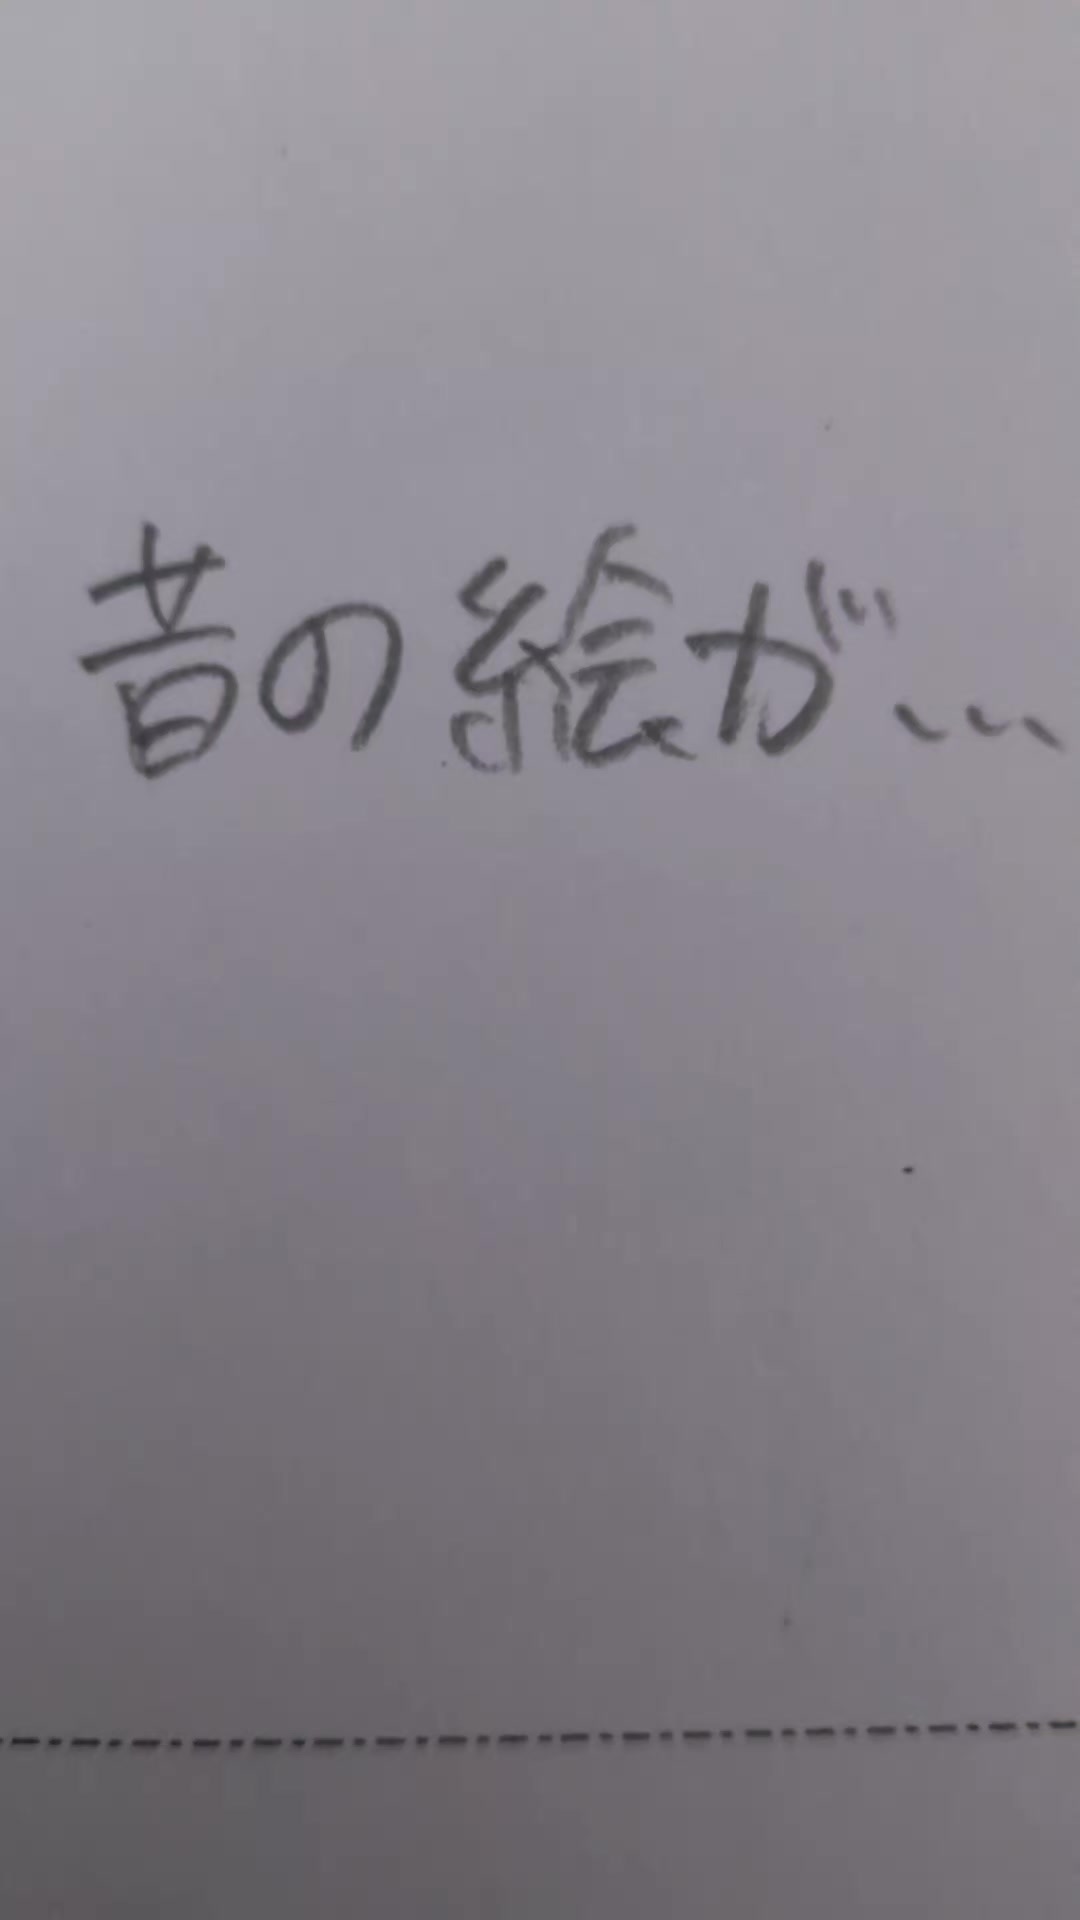 昔の絵が…